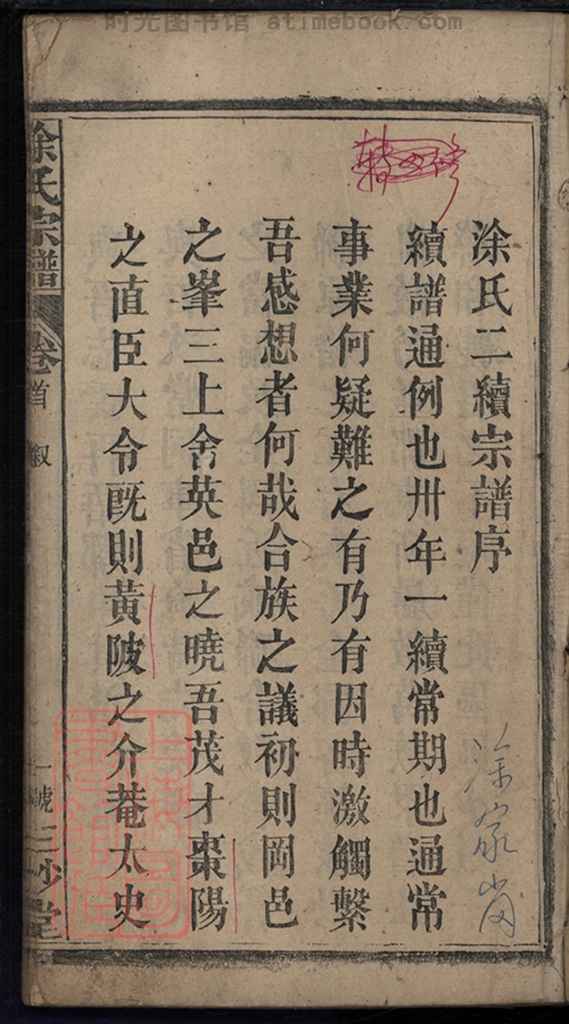 时光图书馆 atimebook.com
涂氏二續宗譜序
續譜通例也卅年一續常期也通常
事業何疑難之有乃有因時激觸繫
吾感想者何哉合族之議初則岡邑
之峯三上舍英邑之曉吾茂才棗陽
之直臣大令旣則黃陂之介菴太史
涂氏宗譜 卷首 敘 一號 三妙堂
涂家崗